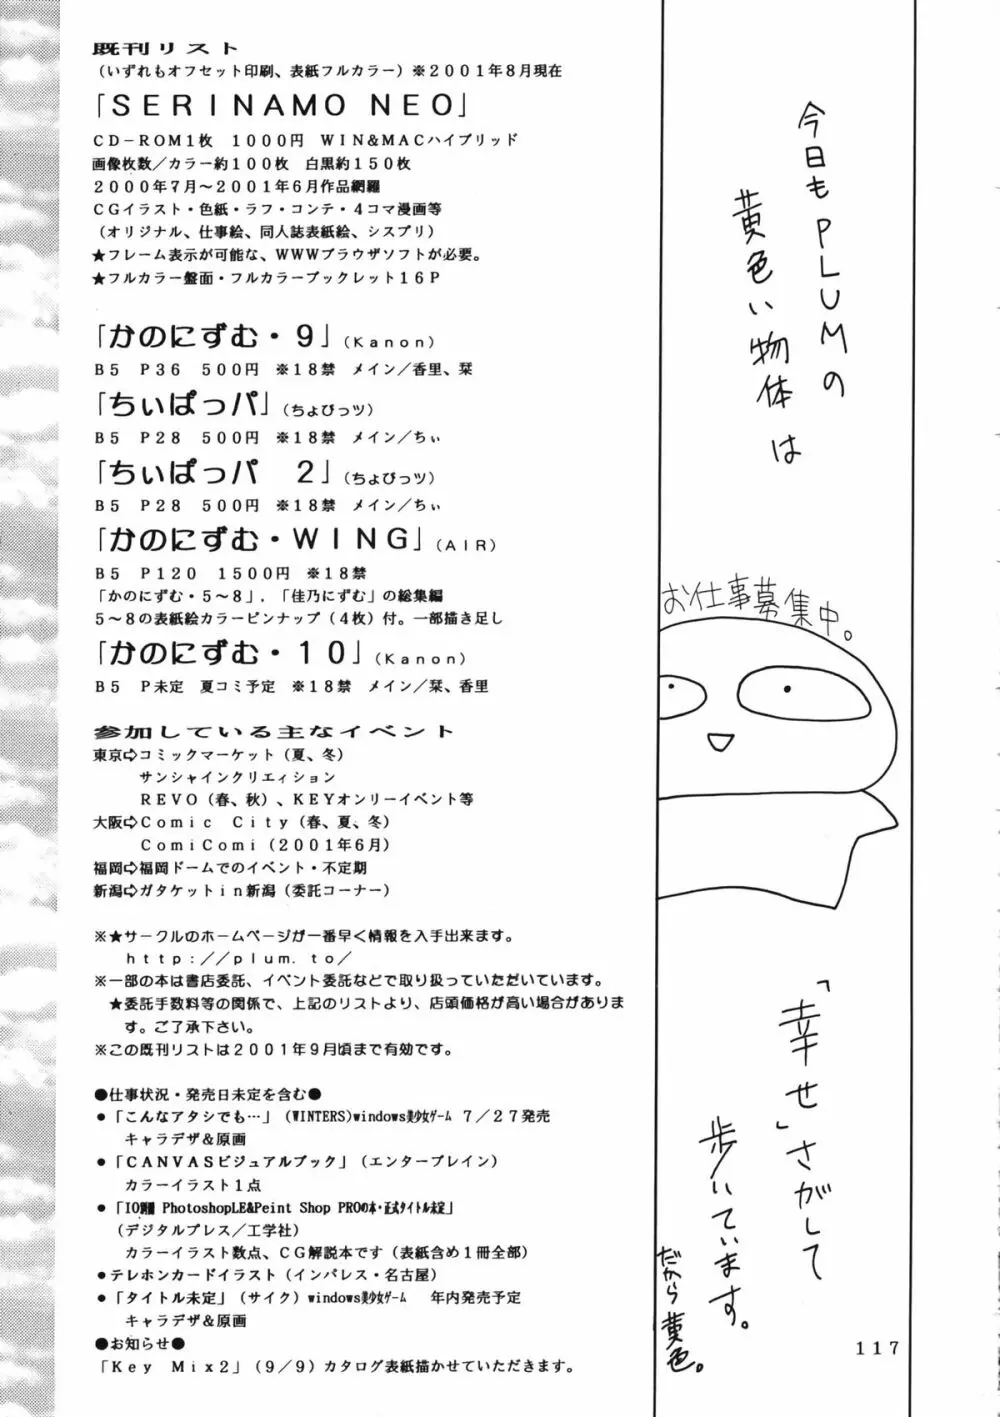 既刊リスト
（いずれもオフセット印刷、表紙フルカラー）※２００１年８月現在
「ＳＥＲＩＮＡＭＯ ＮＥＯ」
ＣＤ－ＲＯＭ１枚　１０００円　ＷＩＮ＆ＭＡＣハイブリッド
画像枚数／カラー約１００枚　白黒約１５０枚
２０００年７月～２００１年６月作品網羅
ＣＧイラスト・色紙・ラフ・コンテ・４コマ漫画等
（オリジナル、仕事絵、同人誌表紙絵、シスプリ）
★フレーム表示が可能な、ＷＷＷブラウザソフトが必要。
★フルカラー盤面・フルカラーブックレット１６Ｐ
「かのにずむ・９」（Ｋａｎｏｎ）
Ｂ５　Ｐ３６　５００円　※１８禁　メイン／香里、栞
「ちぃぱっパ」（ちょびっツ）
Ｂ５　Ｐ２８　５００円　※１８禁　メイン／ちぃ
「ちぃぱっパ　２」（ちょびっツ）
Ｂ５　Ｐ２８　５００円　※１８禁　メイン／ちぃ
「かのにずむ・ＷＩＮＧ」（ＡＩＲ）
Ｂ５　Ｐ１２０　１５００円　※１８禁
「かのにずむ・５～８」，「佳乃にずむ」の総集編
５～８の表紙絵カラーピンナップ（４枚）付。一部描き足し
「かのにずむ・１０」（Ｋａｎｏｎ）
Ｂ５　Ｐ未定　夏コミ予定　※１８禁　メイン／栞、香里
参加している主なイベント
東京⇨コミックマーケット（夏、冬）
サンシャインクリエィション
ＲＥＶＯ（春、秋）、ＫＥＹオンリーイベント等
大阪⇨Ｃｏｍｉｃ　Ｃｉｔｙ（春、夏、冬）
ＣｏｍｉＣｏｍｉ（２００１年６月）
福岡⇨福岡ドームでのイベント・不定期
新潟⇨ガタケットｉｎ新潟（委託コーナー）
※★サークルのホームページが一番早く情報を入手出来ます。
ｈｔｔｐ：／／ｐｌｕｍ．ｔｏ／
※一部の本は書店委託、イベント委託などで取り扱っていただいています。
★委託手数料等の関係で、上記のリストより、店頭価格が高い場合がありま
す。ご了承下さい。
※この既刊リストは２００１年９月頃まで有効です。
●仕事状況・発売日未定を含む●
●「こんなアタシでも…」（WINTERS)windows美少女ｹﾞｰﾑ ７／２７発売
キャラデザ＆原画
●「ＣＡＮＶＡＳビジュアルブック」（エンターブレイン）
カラーイラスト１点
（デジタルプレス／工学社）
カラーイラスト数点、ＣＧ解説本です（表紙含め１冊全部）
●テレホンカードイラスト（インパレス・名古屋）
●「タイトル未定」（サイク）windows美少女ｹﾞｰﾑ　年内発売予定
キャラデザ＆原画
●お知らせ●
「Ｋｅｙ　Ｍｉｘ２」（９／９）カタログ表紙描かせていただきます。
今日もPLUMの
黄色い物体は
お仕事募集中。
「幸せ」さがして
歩いています。
だから黄色。
１１７